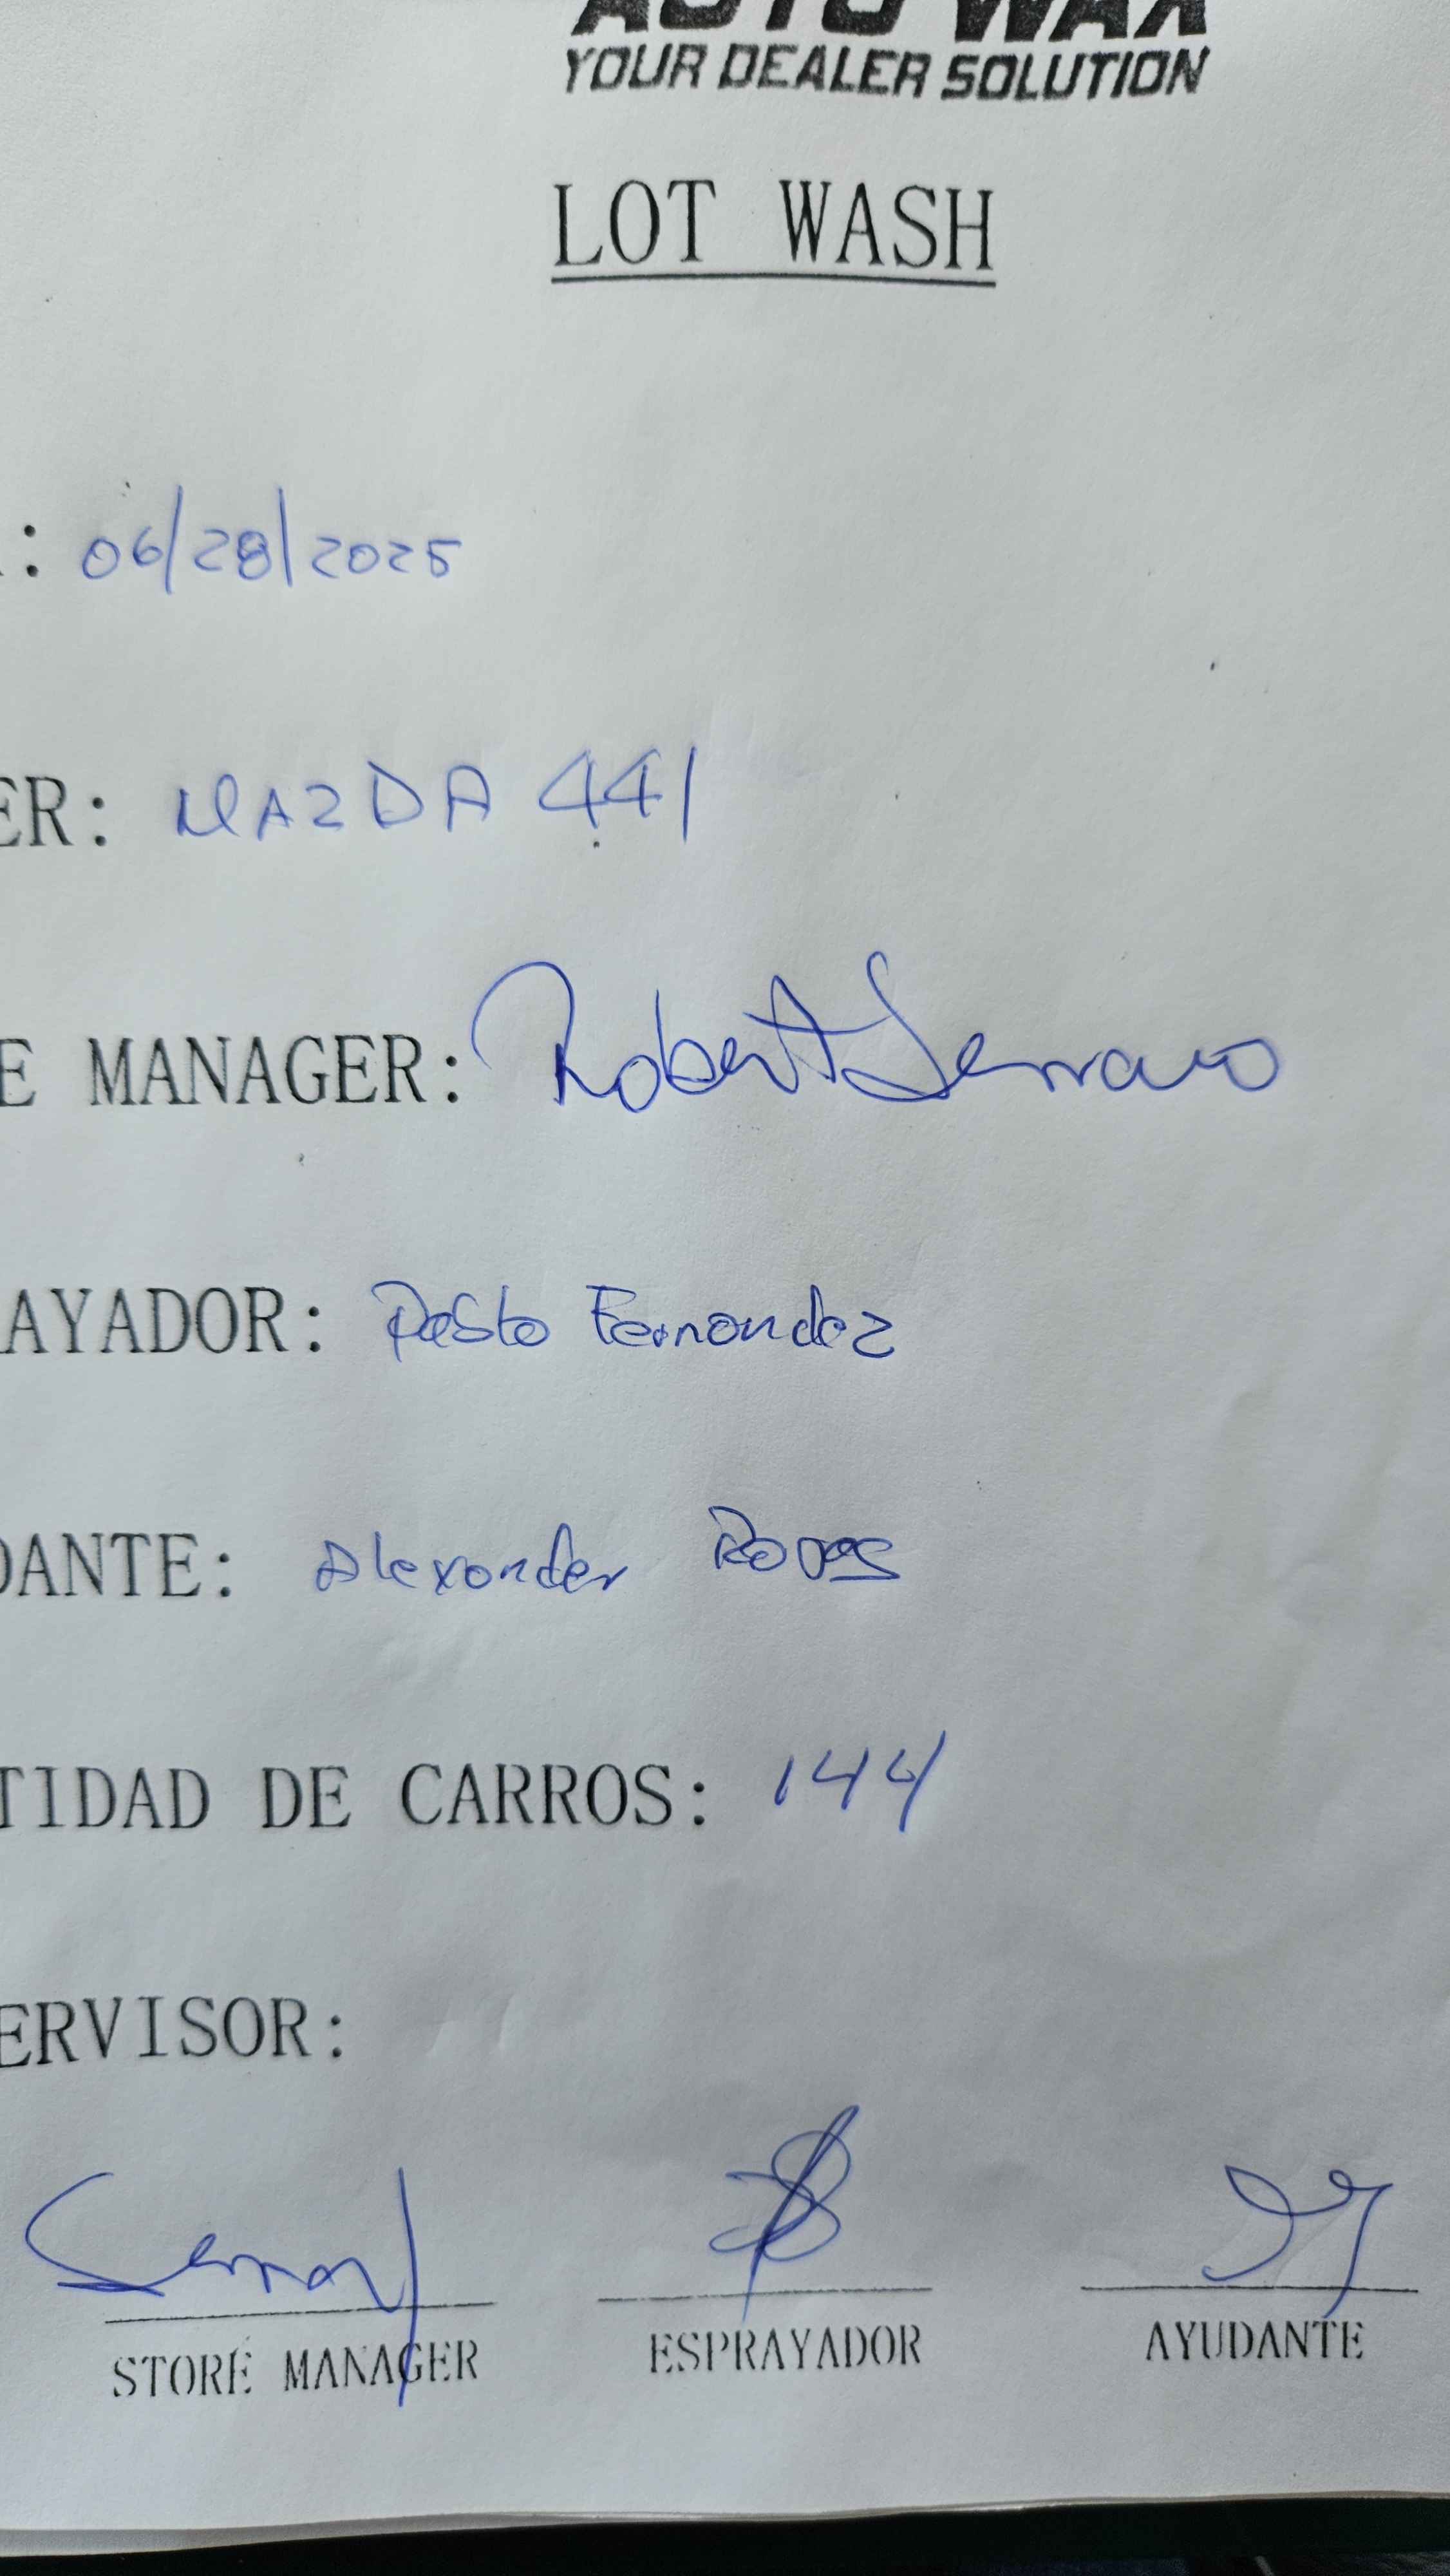 AUTO WAX
YOUR DEALER SOLUTION
LOT WASH
: 06/28/2025
ER: MAZDA 441
E MANAGER: Robert Serrano
AYADOR: Pablo Fernandez
DANTE: Alexander
TIDAD DE CARROS: 144
ERVISOR:
STORE MANAGER ESPRAYADOR AYUDANTE